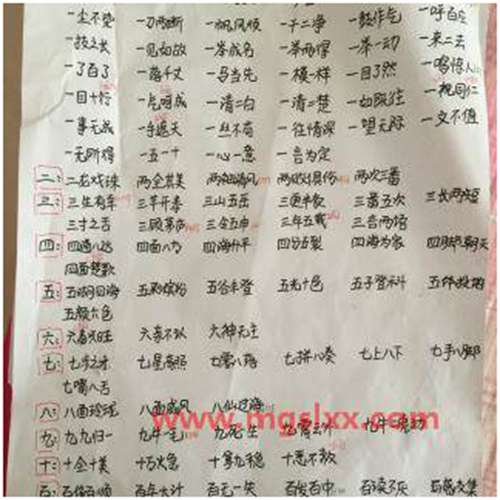 一尘不染 一刀两断 一帆风顺 一干二净 一鼓作气 一呼百应
一技之长 一见如故 一举成名 一举两得 一举一动 一来二去
一了百了 一落千丈 一马当先 一模一样 一目了然 一鸣惊人
一目十行 一气呵成 一清二白 一清二楚 一如既往 一视同仁
一事无成 一手遮天 一丝不苟 一往情深 一望无际 一文不值
一无所得 一五一十 一心一意 一言为定
二：二龙戏珠 两全其美 两袖清风 两败俱伤 两次三番
三：三生有幸 三羊开泰 三山五岳 三更半夜 三番五次 三长两短
三寸之舌 三顾茅庐 三令五申 三年五载 三言两语
四：四通八达 四面八方 四海升平 四分五裂 四海为家 四脚朝天
四面楚歌
五：五湖四海 五彩缤纷 五谷丰登 五光十色 五子登科 五体投地
五颜六色
六：六畜兴旺 六亲不认 六神无主
七：七步之才 七星高照 七零八落 七拼八凑 七上八下 七手八脚
七嘴八舌
八：八面玲珑 八面威风 八仙过海
www.mgslxx.com
九：九九归一 九牛一毛 九死一生 九霄云外 九牛二虎
十：十全十美 十万火急 十拿九稳 十恶不赦
百：百依百顺 百年大计 百发百中 百读不厌 百感交集